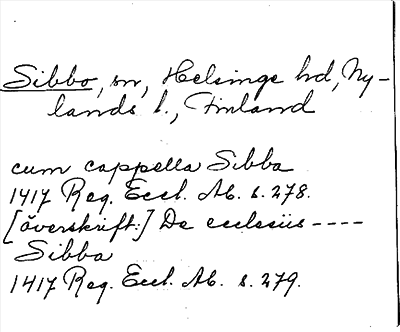 Sibbo, sn, Helsinge hd, Ny-
lands l., Finland
cum cappella Sibba
1417 Reg. Eccl. Ab. s. 278.
[överskrift:] De ecclesiis ----
Sibba
1417 Reg. Eccl. Ab. s. 279.